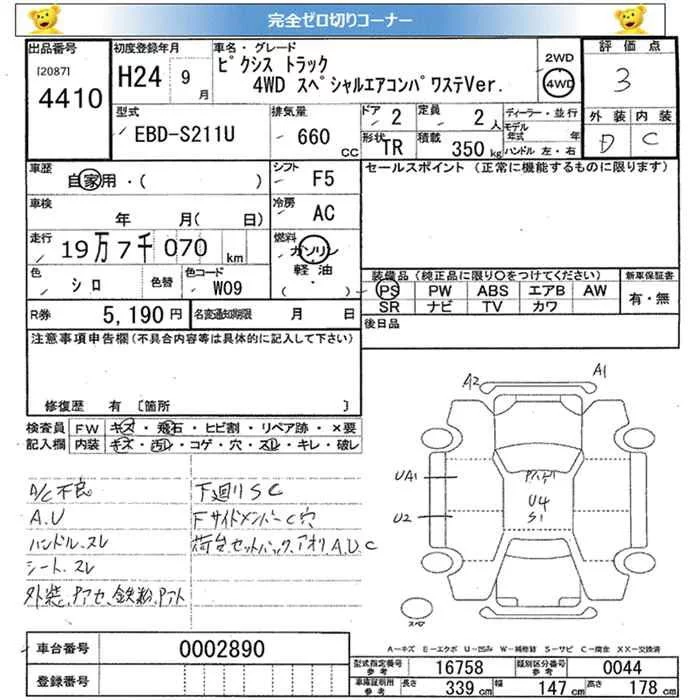 完全ゼロ切りコーナー
出品番号
[2087]
4410
初度登録年月
H24 9月
車名・グレード
ピクシス トラック
4WD スペシャルエアコンパワステVer.
2WD
4WD
評価点
3
外装 内装
D C
型式
EBD-S211U
排気量
660 CC
ドア 2
定員 2人
形状 TR
積載 350kg
ディーラー・並行
モデル年式 年
ハンドル 左・右
車歴
自家用・( )
シフト F5
車検
年 月( 日)
冷房 AC
走行
19万7千070 km
燃料
ガソリン
軽油
( )
色
シロ
色替
色コード
W09
R券 5,190円
名変通知期限 月 日
セールスポイント (正常に機能するものに限ります)
装備品(純正品に限り○をつけてください)
PS PW ABS エアB AW
SR ナビ TV カワ
新車保証書
有・無
後日品
注意事項申告欄(不具合内容等は具体的に記入して下さい)
修復歴 有 〔箇所 〕
検査員記入欄
FW キズ・飛石・ヒビ割・リペア跡・×要
内装 キズ・汚レ・コゲ・穴・スレ・キレ・破レ
A/C不良
A.U
ハンドル.スレ
シート.スレ
外装.Pアセ.鉄粉.Pアト
下廻りSC
FサイドメンバーC穴
荷台.セットバック.アオリA.U.C
A2 A1
UA1
U2
U4
S1
スペア
A－キズ E－エクボ U－凹み W－補修跡 S－サビ C－腐食 XX－交換済
車台番号 0002890
登録番号
型式指定番号 参考 16758
類別区分番号 参考 0044
車庫証明用 参考
長さ 339cm 幅 147cm 高さ 178cm